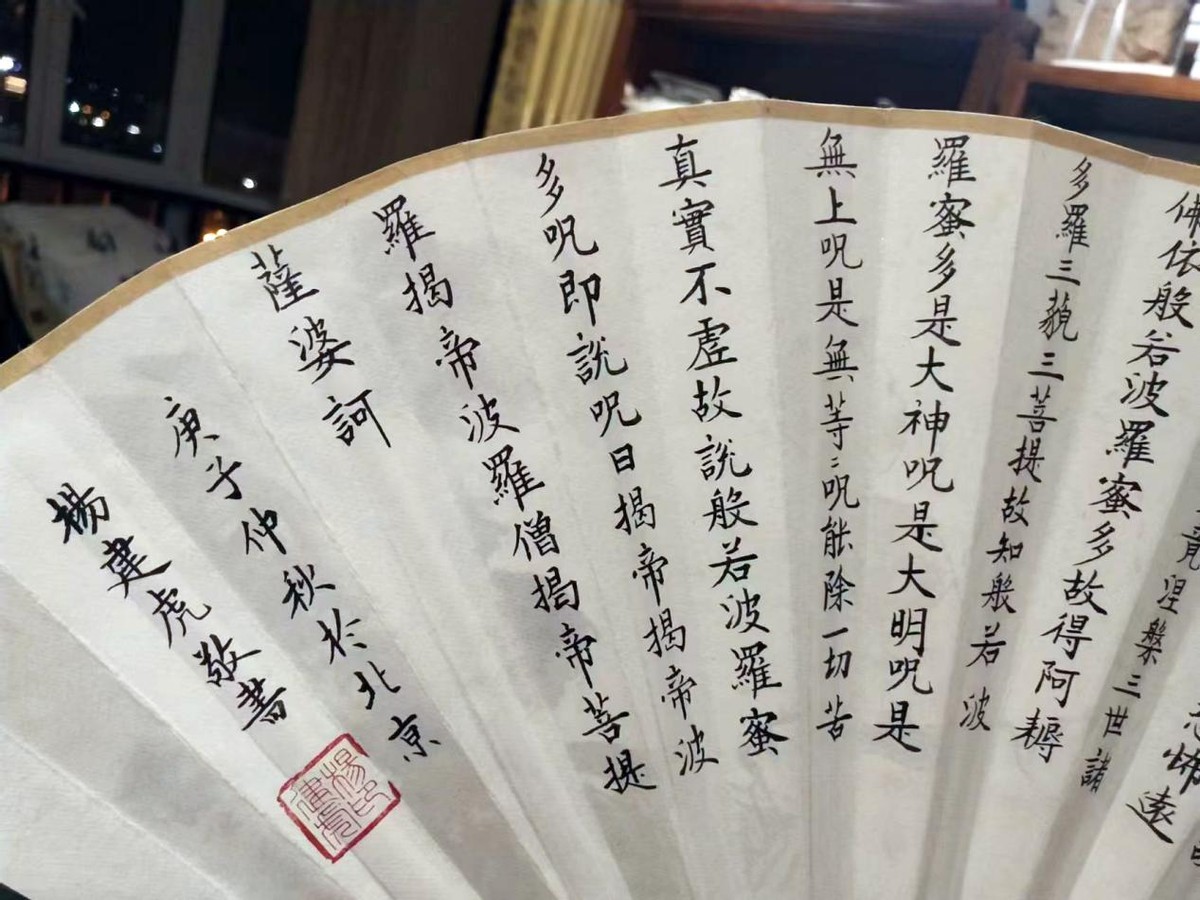 怖遠
竟涅槃三世諸
佛依般若波羅蜜多故得阿耨
多羅三藐三菩提故知般若波
羅蜜多是大神呪是大明呪是
無上呪是無等〻呪能除一切苦
真實不虛故說般若波羅蜜
多呪即說呪曰揭帝揭帝波
羅揭帝波羅僧揭帝菩提
薩婆訶
庚子仲秋於北京
楊建虎敬書